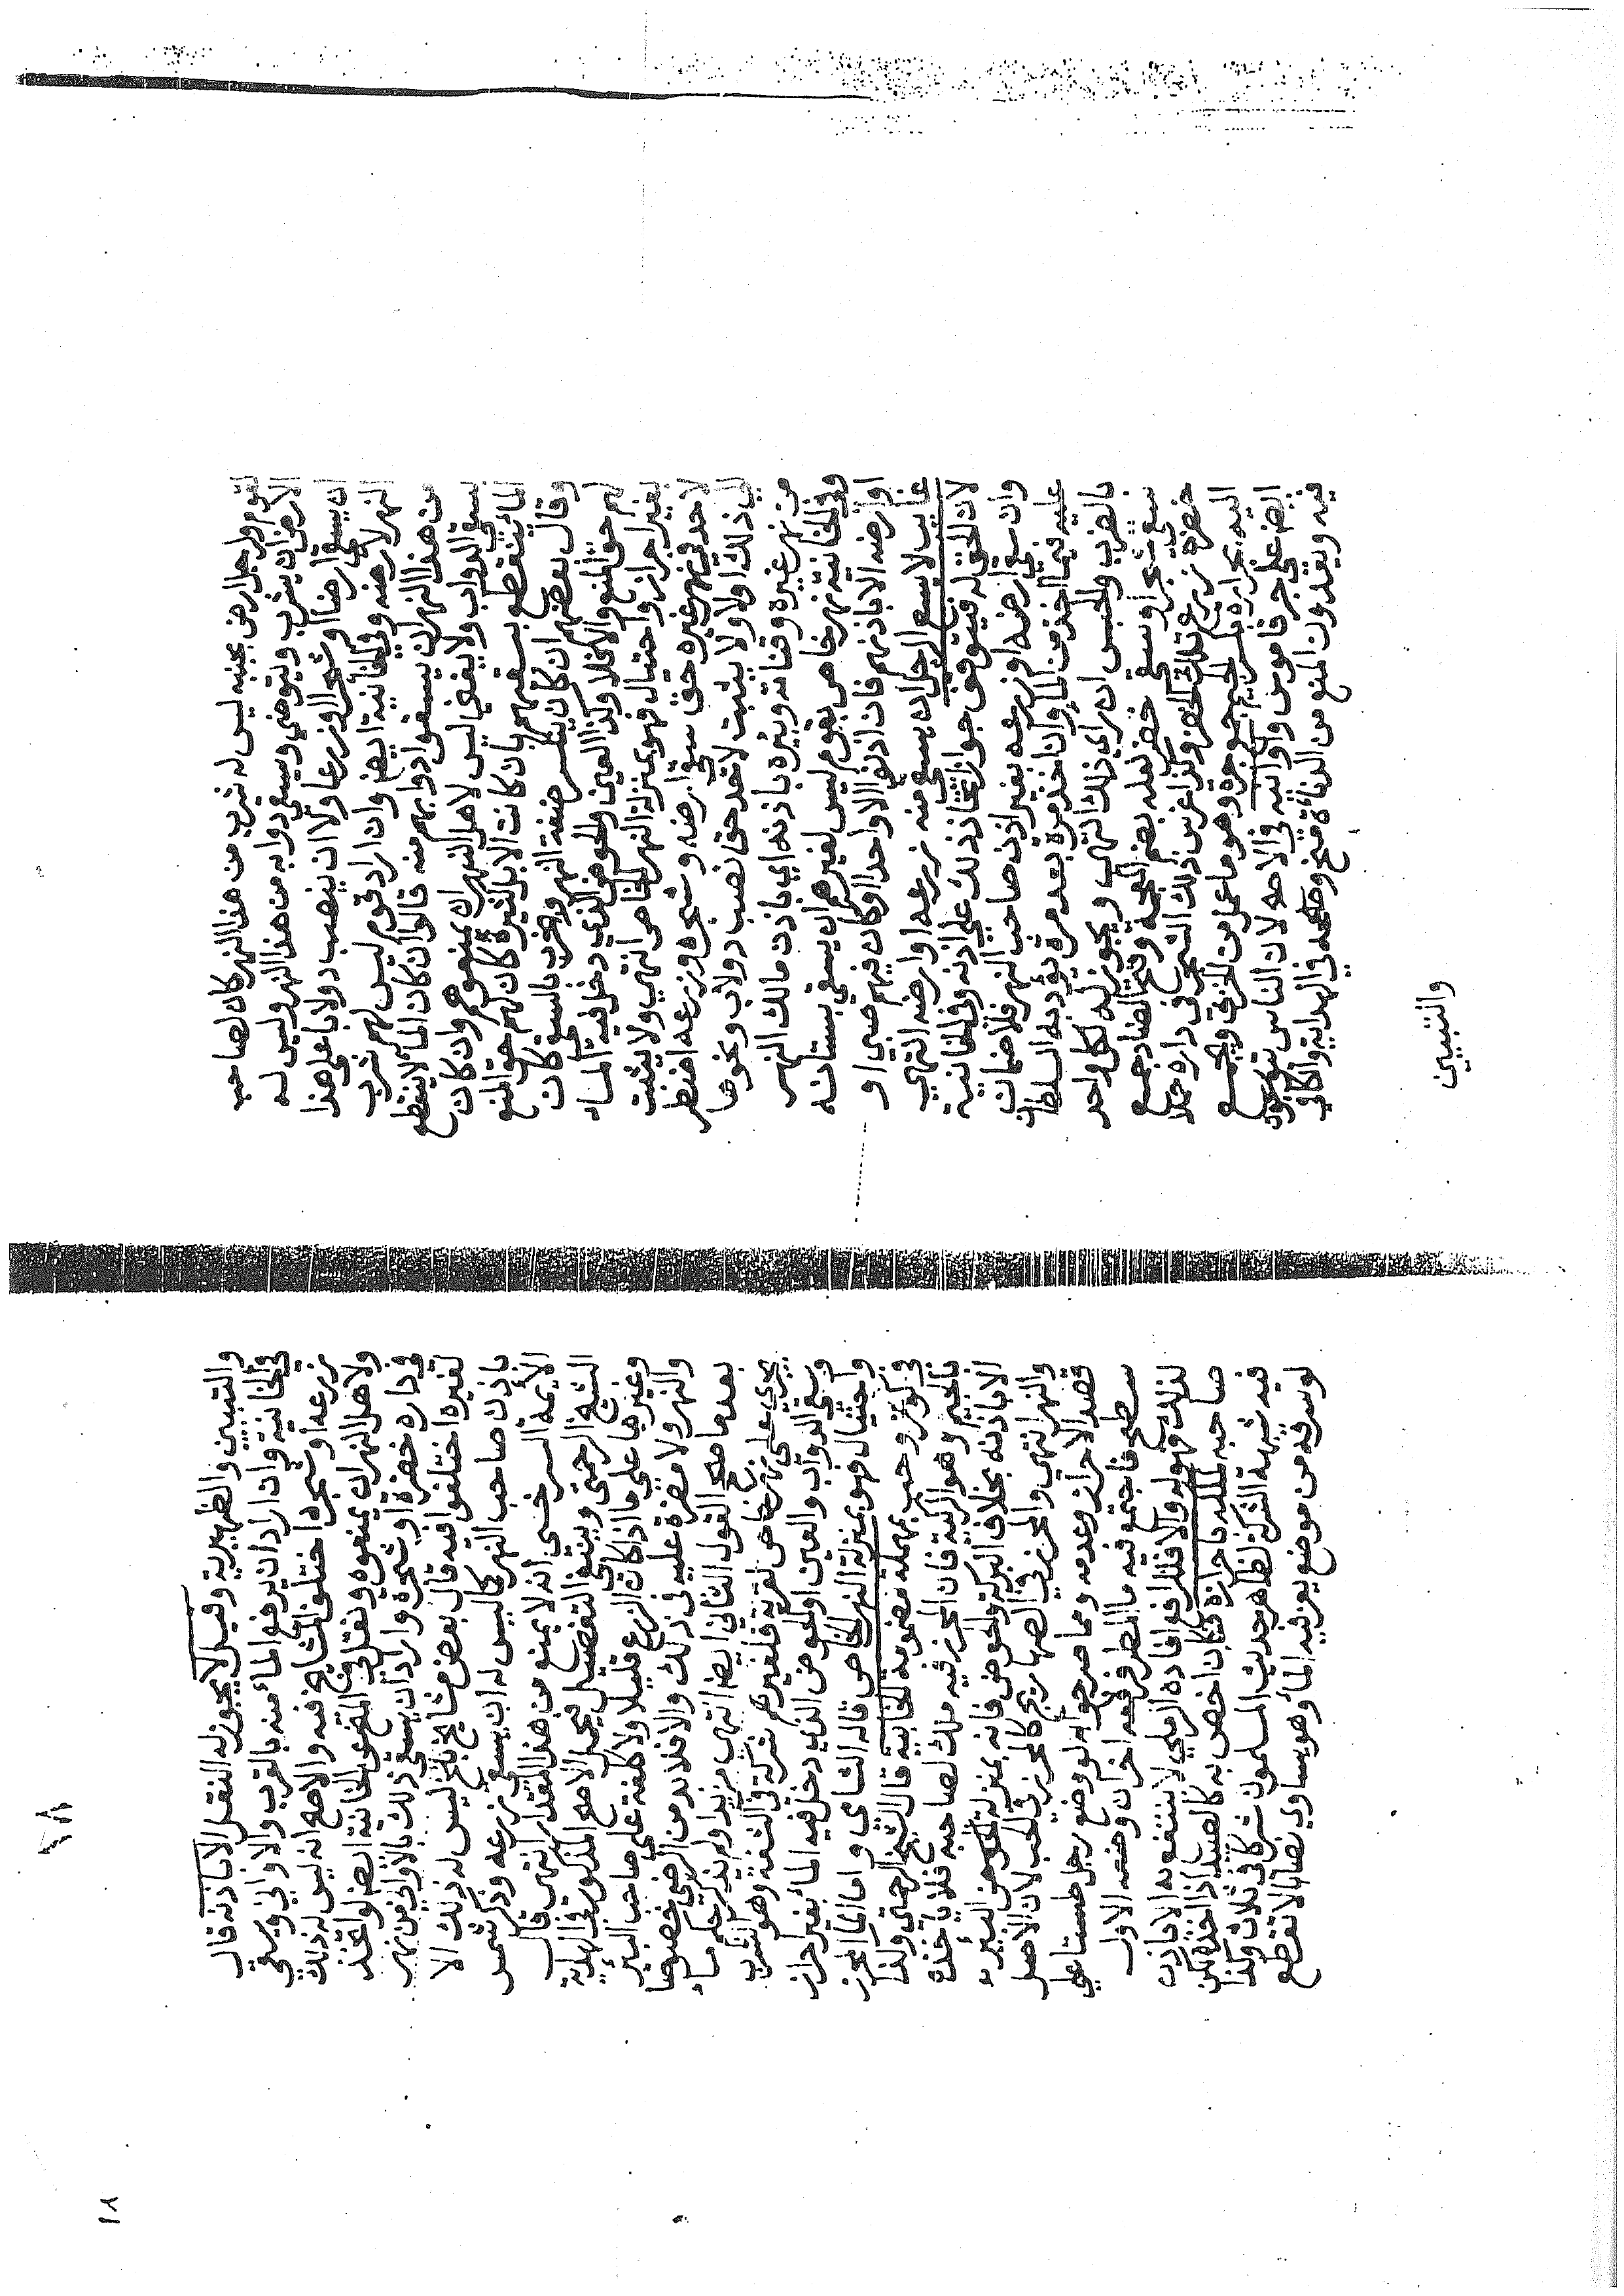 لقوم ولرجل ارض بجنبه ليس له شرب من هذا النهر كان لصاحب
الارض ان يشرب ويتوضي ويسقي دوابه من هذا النهر وليس له
ان يسقي ارضا او شجرا او زرعا ولا ان ينصب دولابا على هذا
النهر لارضه وفي الخانية ايضا وان اراد قوم ليس لهم شرب
من هذا النهر ان يسقوا دوابهم منه قالوا ان كان الماء لا ينقطع
بسقي الدواب ولا يفني ليس لاهل النهر ان يمنعوهم وان كان
الماء ينقطع بسقيهم بان كانت الابل كثيرة كان لهم حق المنع
وقال بعضهم ان كان ينكسر ضفة النهر ويخرب بالسقي كان
لهم حق المنع والا فلا وكذا العين والحوض الذي دخل فيه الماء
بغير احراز واحتيال فهو بمنزلة النهر الخاص انتهى ولا يثبت
لاحد في نهر غيره حق سقي ارضه وشجره وزرعه اضطر
الي ذلك او لا ولا يثبت لاحد حق نصب دولاب ونحوها
من نهر غيره وقناته وبئره باذنه اي باذن مالك النهر
وفي الخانية نهر خاص بقوم ليس لغيرهم ان يسقي بستانه
او ارضه الا باذنهم فان اذنوا الا واحدا او كان فيهم صبي او
غايب لا يسع الرجل ان يسقي منه زرعه او ارضه انتهى
لان الحق له فيتوقف جواز اتخاذ ذلك على اذنه وفي الخانية
وان سقي ارضه او زرعه بغير اذن صاحب النهر فلا ضمان
عليه فيما اخذ من الماء وان اخذ مرة بعد مرة يؤدبه السلطان
بالضرب والحبس ان راي ذلك انتهى ويجوز له لكل واحد
سقي شجر او سقي خضر نعله بضم المعجمة وفتح الضاد جمع
خضرة زرع تلك الخضر وكذا غرس ذلك الشجر في داره حملا
اليه بجراره بكسر الجيم جمع جرة وهو ما عمل من الخزف ويجمع
ايضا على جر قاموس واوانيه في الاصح لان الناس يتوسعون
فيه ويعدون المنع من الدناءة منح وصححه في الهداية والكافي
والتبيين
والتبيين والظهيرية وقيل لا يجوز له النقل الا باذنه قال
في الخانية وان اراد ان يرفع الماء منه بالقرب والاواني ويسقي
زرعه او شجره اختلف المشايخ فيه والاصح انه ليس له ذلك
ولاهل النهر ان يمنعوه ونقل في المنح عن الخانية ايضا لو اتخذ
في داره خضرة او شجرة واراد ان يسقي ذلك بالاواني من نهر
لغيره اختلفوا فيه قال بعض مشايخ بلخ ليس له ذلك الا
باذن صاحب النهر كما ليس له ان يسقي زرعه وذكر شمس
الأئمة السرخسي انه لا يمنع من هذا المقدار انتهى قال
الشيخ الرحمتي وينبغي التفصيل فيحمل الاصح المذكور في الهداية
وغيرها على ما اذا كان الزرع قليلا ولا كلفة على صاحب البئر
والنهر ولا مضرة عليه في ذلك والا فلا بد من الرضي خصوصا
بعد ما صحح القول الثاني ايضا انتهى مزيدا ولم يذكر حكم ماء
يجري على نهر خاص لقرية فلغيرهم شركة في الشفة وهو الشرب
وسقي الدواب والعين او الحوض الذي دخل فيه الماء بغير احراز
واحتيال فهو بمنزلة النهر الخاص قاله الشامي واما الماء المحرز
في كوز وحب بمهملة مضمومة الخابية قال الشيخ الرحمتي وكذا
بالجيم وهو الركية فان المحرز فيه ملك لصاحبه فلا ياخذه
الا باذنه بخلاف البركة والحوض فانه بمنزلة الحوض البئر
والنهر انتهى والمحرز في الصهاريج كالمحرز في الحب لان الاصل
قصد الاحراز وعدمه ومما صرحوا به لو وضع رجل طستا على
سطح فاجتمع فيه ماء المطر فرفعه اخر ان وضعه الاول
لذلك فهو له والا فللرافع افاده الرملي لا ينتفع به الا باذن
صاحبه لملكه باحرازه فكان اخص به كالصيد اذا اخذه لكن
فيه شبهة الشركة لظاهر حديث المسلمون شركاء في ثلاث وكذا
لو سرقه من موضع يعز فيه الماء وهو يساوي نصابا لا تقطع